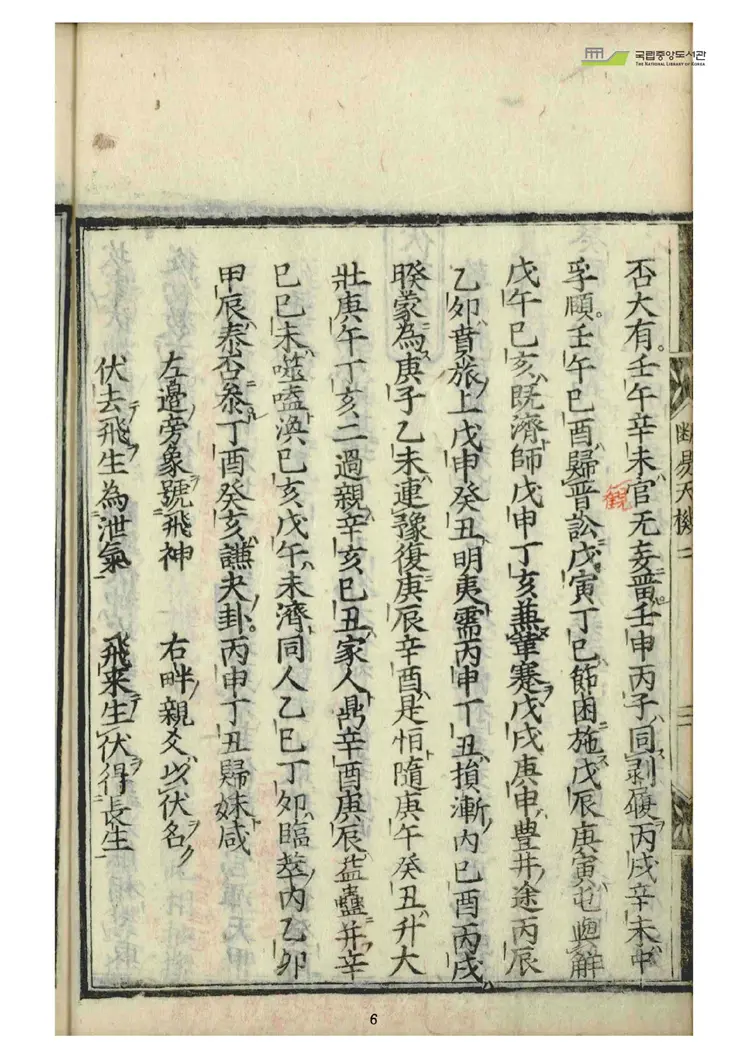 국립중앙도서관
THE NATIONAL LIBRARY OF KOREA
断易天機二
三
否大有壬午辛未官无妄晋壬申丙子同剥履丙戌辛未中
孚頤壬午巳酉歸晋訟戊寅丁巳節困施戊辰庚寅屯與解
観
戊午巳亥既濟師戊申丁亥兼革蹇戊戌庚申豊井途丙辰
乙夘賁旅上戊申癸丑明夷需丙申丁丑損漸内巳酉丙戌
睽蒙為庚子乙未連豫復庚辰辛酉是怕隨庚午癸丑升大
壯庚午丁亥二過親辛亥巳丑家人鼎辛酉庚辰益蠱并辛
巳巳未噬嗑渙巳亥戊午未濟同人乙巳丁夘臨萃内乙卯
甲辰泰否叅丁酉癸亥謙夬卦丙申丁丑歸妹咸
左邉旁象號飛神 右畔親爻㕥伏名
伏去飛生為泄氣 飛来生伏得長生
6